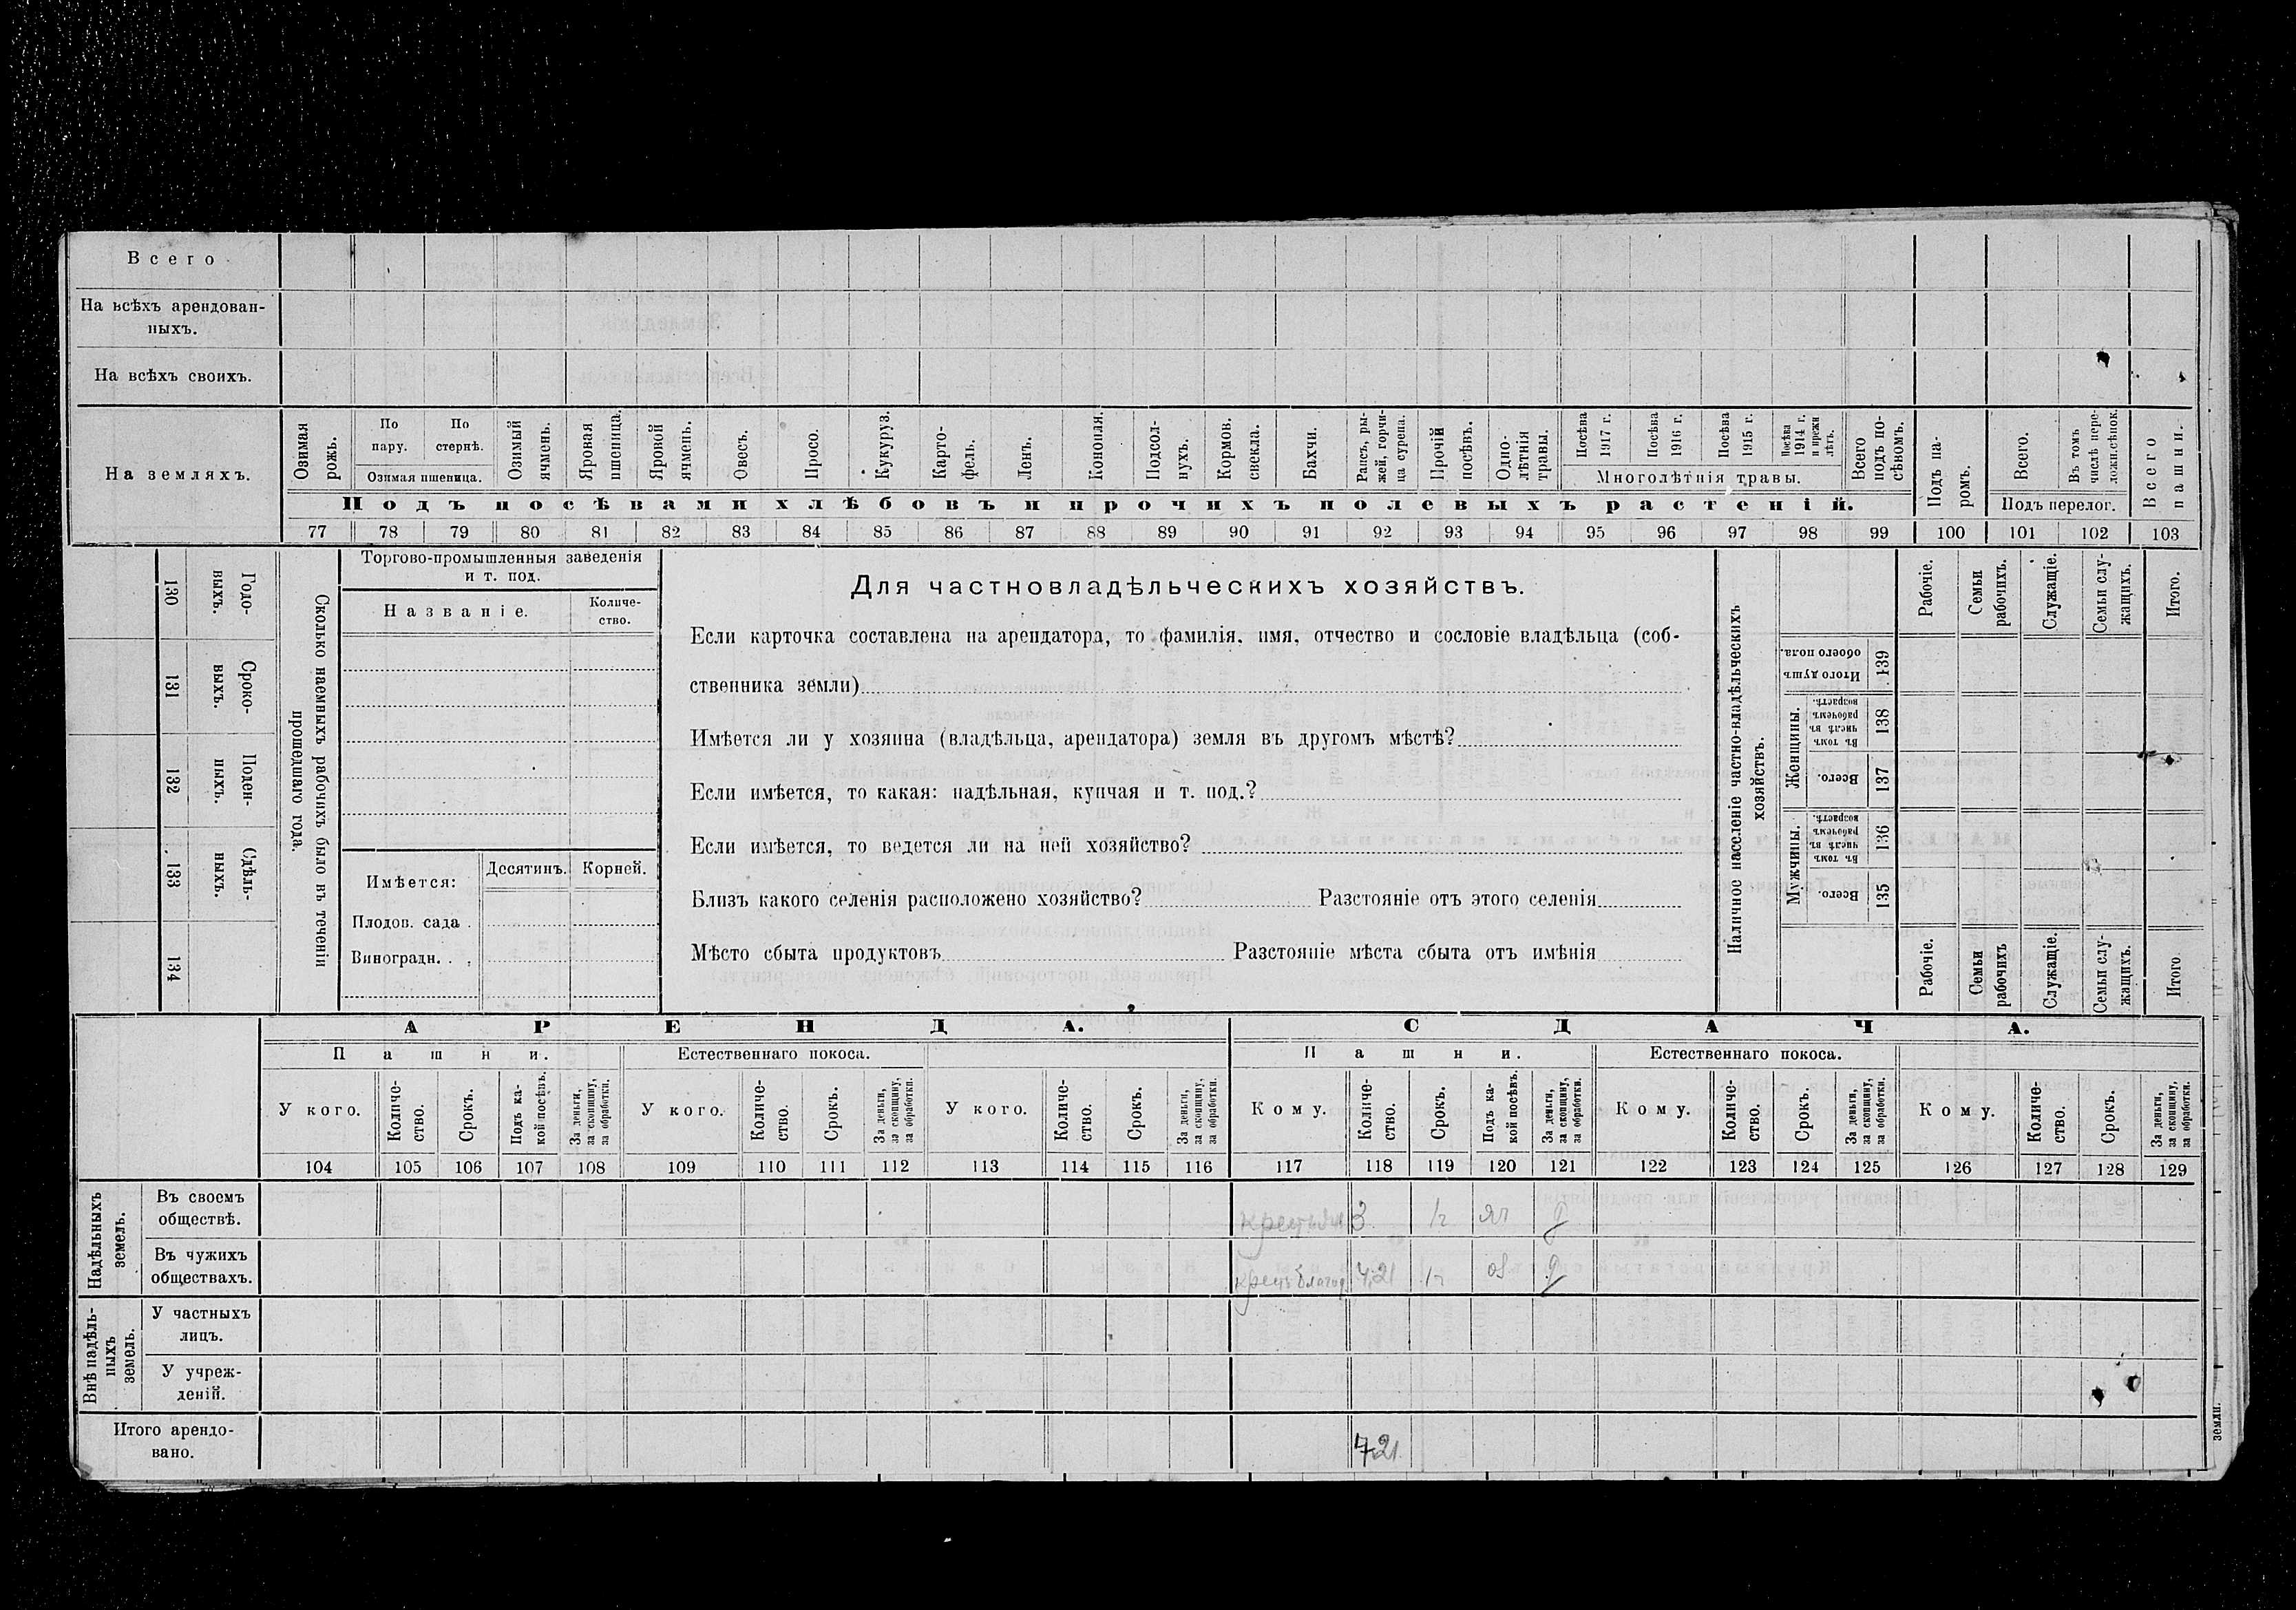 Всего
На всѣхъ арендован-
ныхъ.
На всѣхъ своихъ.
На земляхъ.
Озимая
рожь.
По
пару.
По
стернѣ.
Озимая пшеница.
Озимый
ячмень.
Яровая
пшеница.
Яровой
ячмень.
Овесъ.
Просо.
Кукуруз.
Карто-
фель.
Ленъ.
Конопля.
Подсол-
нухъ.
Кормов.
свекла.
Бахчи.
Рапсъ, ры-
жей, горчи-
ца сурепа.
Прочій
посѣвъ.
Одно-
лѣтнія
травы.
Посѣва
1917 г.
Посѣва
1916 г.
Посѣва
1915 г.
Посѣва
1914 г.
и прежн
лѣтъ.
Многолѣтнія травы.
Всего
подъ по-
сѣвомъ.
Подъ па-
ромъ.
Всего.
Въ томъ
числѣ пере-
ложн.сѣнок.
Подъ перелог.
Всего
пашни.
Подъ посѣвами хлѣбовъ и прочихъ полевыхъ растеній.
77 78 79 80 81 82 83 84 85 86 87 88 89 90 91 92 93 94 95 96 97 98 99 100 101 102 103
130
Годо-
выхъ.
131
Сроко-
выхъ.
132
Поден-
ныхъ.
133
Сдѣль-
ныхъ.
134
Сколько наемныхъ рабочихъ было въ теченіи
прошедшаго года.
Торгово-промышленныя заведенія
и т. под.
Названіе.
Количе-
ство.
Имѣется:
Десятинъ.
Корней.
Плодов. сада .
Виноградн. .
Для частновладѣльческихъ хозяйствъ.
Если карточка составлена на арендатора, то фамилія, имя, отчество и сословіе владѣльца (соб-
ственника земли)
Имѣется ли у хозяина (владѣльца, арендатора) земля въ другомъ мѣстѣ?
Если имѣется, то какая: надѣльная, купчая и т. под.?
Если имѣется, то ведется ли на ней хозяйство?
Близъ какого селенія расположено хозяйство? Разстояніе отъ этого селенія
Мѣсто сбыта продуктовъ Разстояніе мѣста сбыта отъ имѣнія
Наличное населеніе частно-владѣльческихъ
хозяйствъ.
Рабочіе.
Семьи
рабочихъ.
Служащіе.
Семьи слу-
жащихъ.
Итого.
Итого душъ
обоего пола.
139
Женщины.
Въ томъ
числѣ въ
рабочемъ
возрастѣ.
138
Всего.
137
Мужчины.
Въ томъ
числѣ въ
рабочемъ
возрастѣ.
136
Всего.
135
Рабочіе.
Семьи
рабочихъ
Служащіе.
Семьи слу-
жащихъ.
Итого.
АРЕНДА.
СДАЧА.
Пашни.
Естественнаго покоса.
Пашни.
Естественнаго покоса.
У кого.
Количе-
ство.
Срокъ.
Подъ ка-
кой посѣвъ.
За деньги,
за скопщину,
за обработки.
У кого.
Количе-
ство.
Срокъ.
За деньги,
за скопщину,
за обработки.
У кого.
Количе-
ство.
Срокъ.
За деньги,
за скопщину,
за обработки.
Кому.
Количе-
ство.
Срокъ.
Подъ ка-
кой посѣвъ.
За деньги,
за скопщину,
за обработки.
Кому.
Количе-
ство.
Срокъ.
За деньги,
за скопщину,
за обработки.
Кому.
Количе-
ство.
Срокъ.
За деньги,
за скопщину,
за обработки.
104 105 106 107 108 109 110 111 112 113 114 115 116 117 118 119 120 121 122 123 124 125 126 127 128 129
Надѣльныхъ
земель.
Въ своемъ
обществѣ.
3 1г яч д
Въ чужихъ
обществахъ.
4,21 1г ов д
Внѣ надѣль-
ныхъ
земель.
У частныхъ
лицъ.
У учреж-
деній.
Итого арендо-
вано.
7.21
земли.